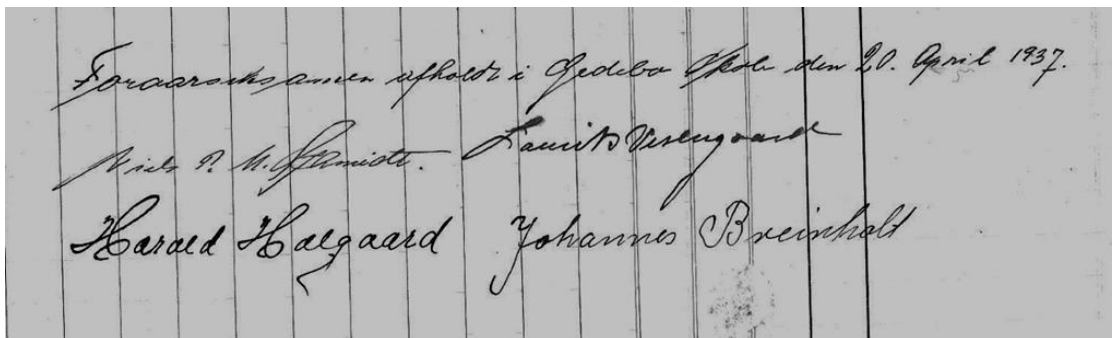 Foraarseksamen afholdt i Gedebo Skole den 20. April 1937.
Niels P. M. Schmidt. Laurits Vesengaard
Harald Halgaard Johannes Breinholt